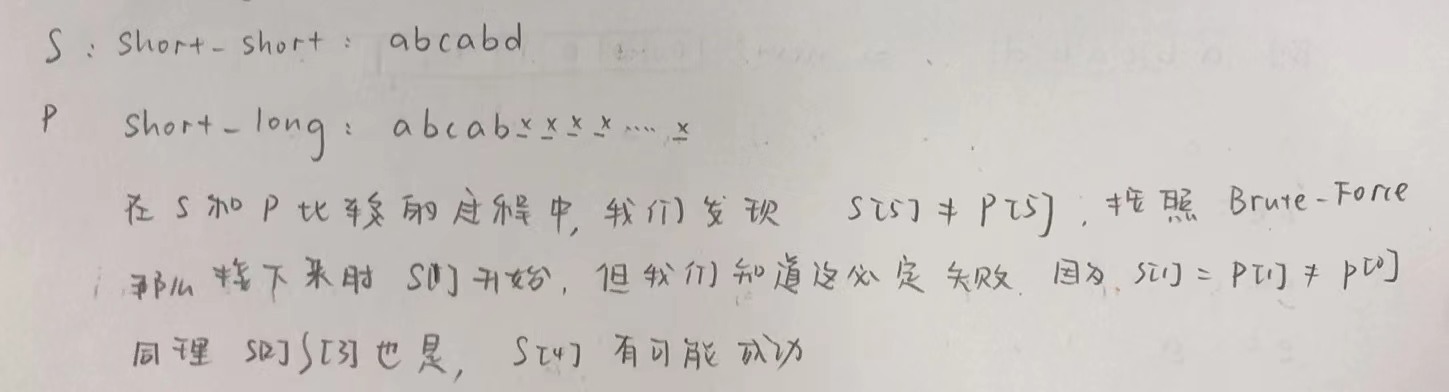 S : short-short : abcabd
P short-long : abcabxxxx....x
在 S 和 P 比较的过程中, 我们发现 S[5] ≠ P[5] , 按照 Brute-Force
那么接下来时 S[1] 开始, 但我们知道这必定失败. 因为 S[1] = P[1] ≠ p[0]
同理 S[2] S[3] 也是, S[4] 有可能成功